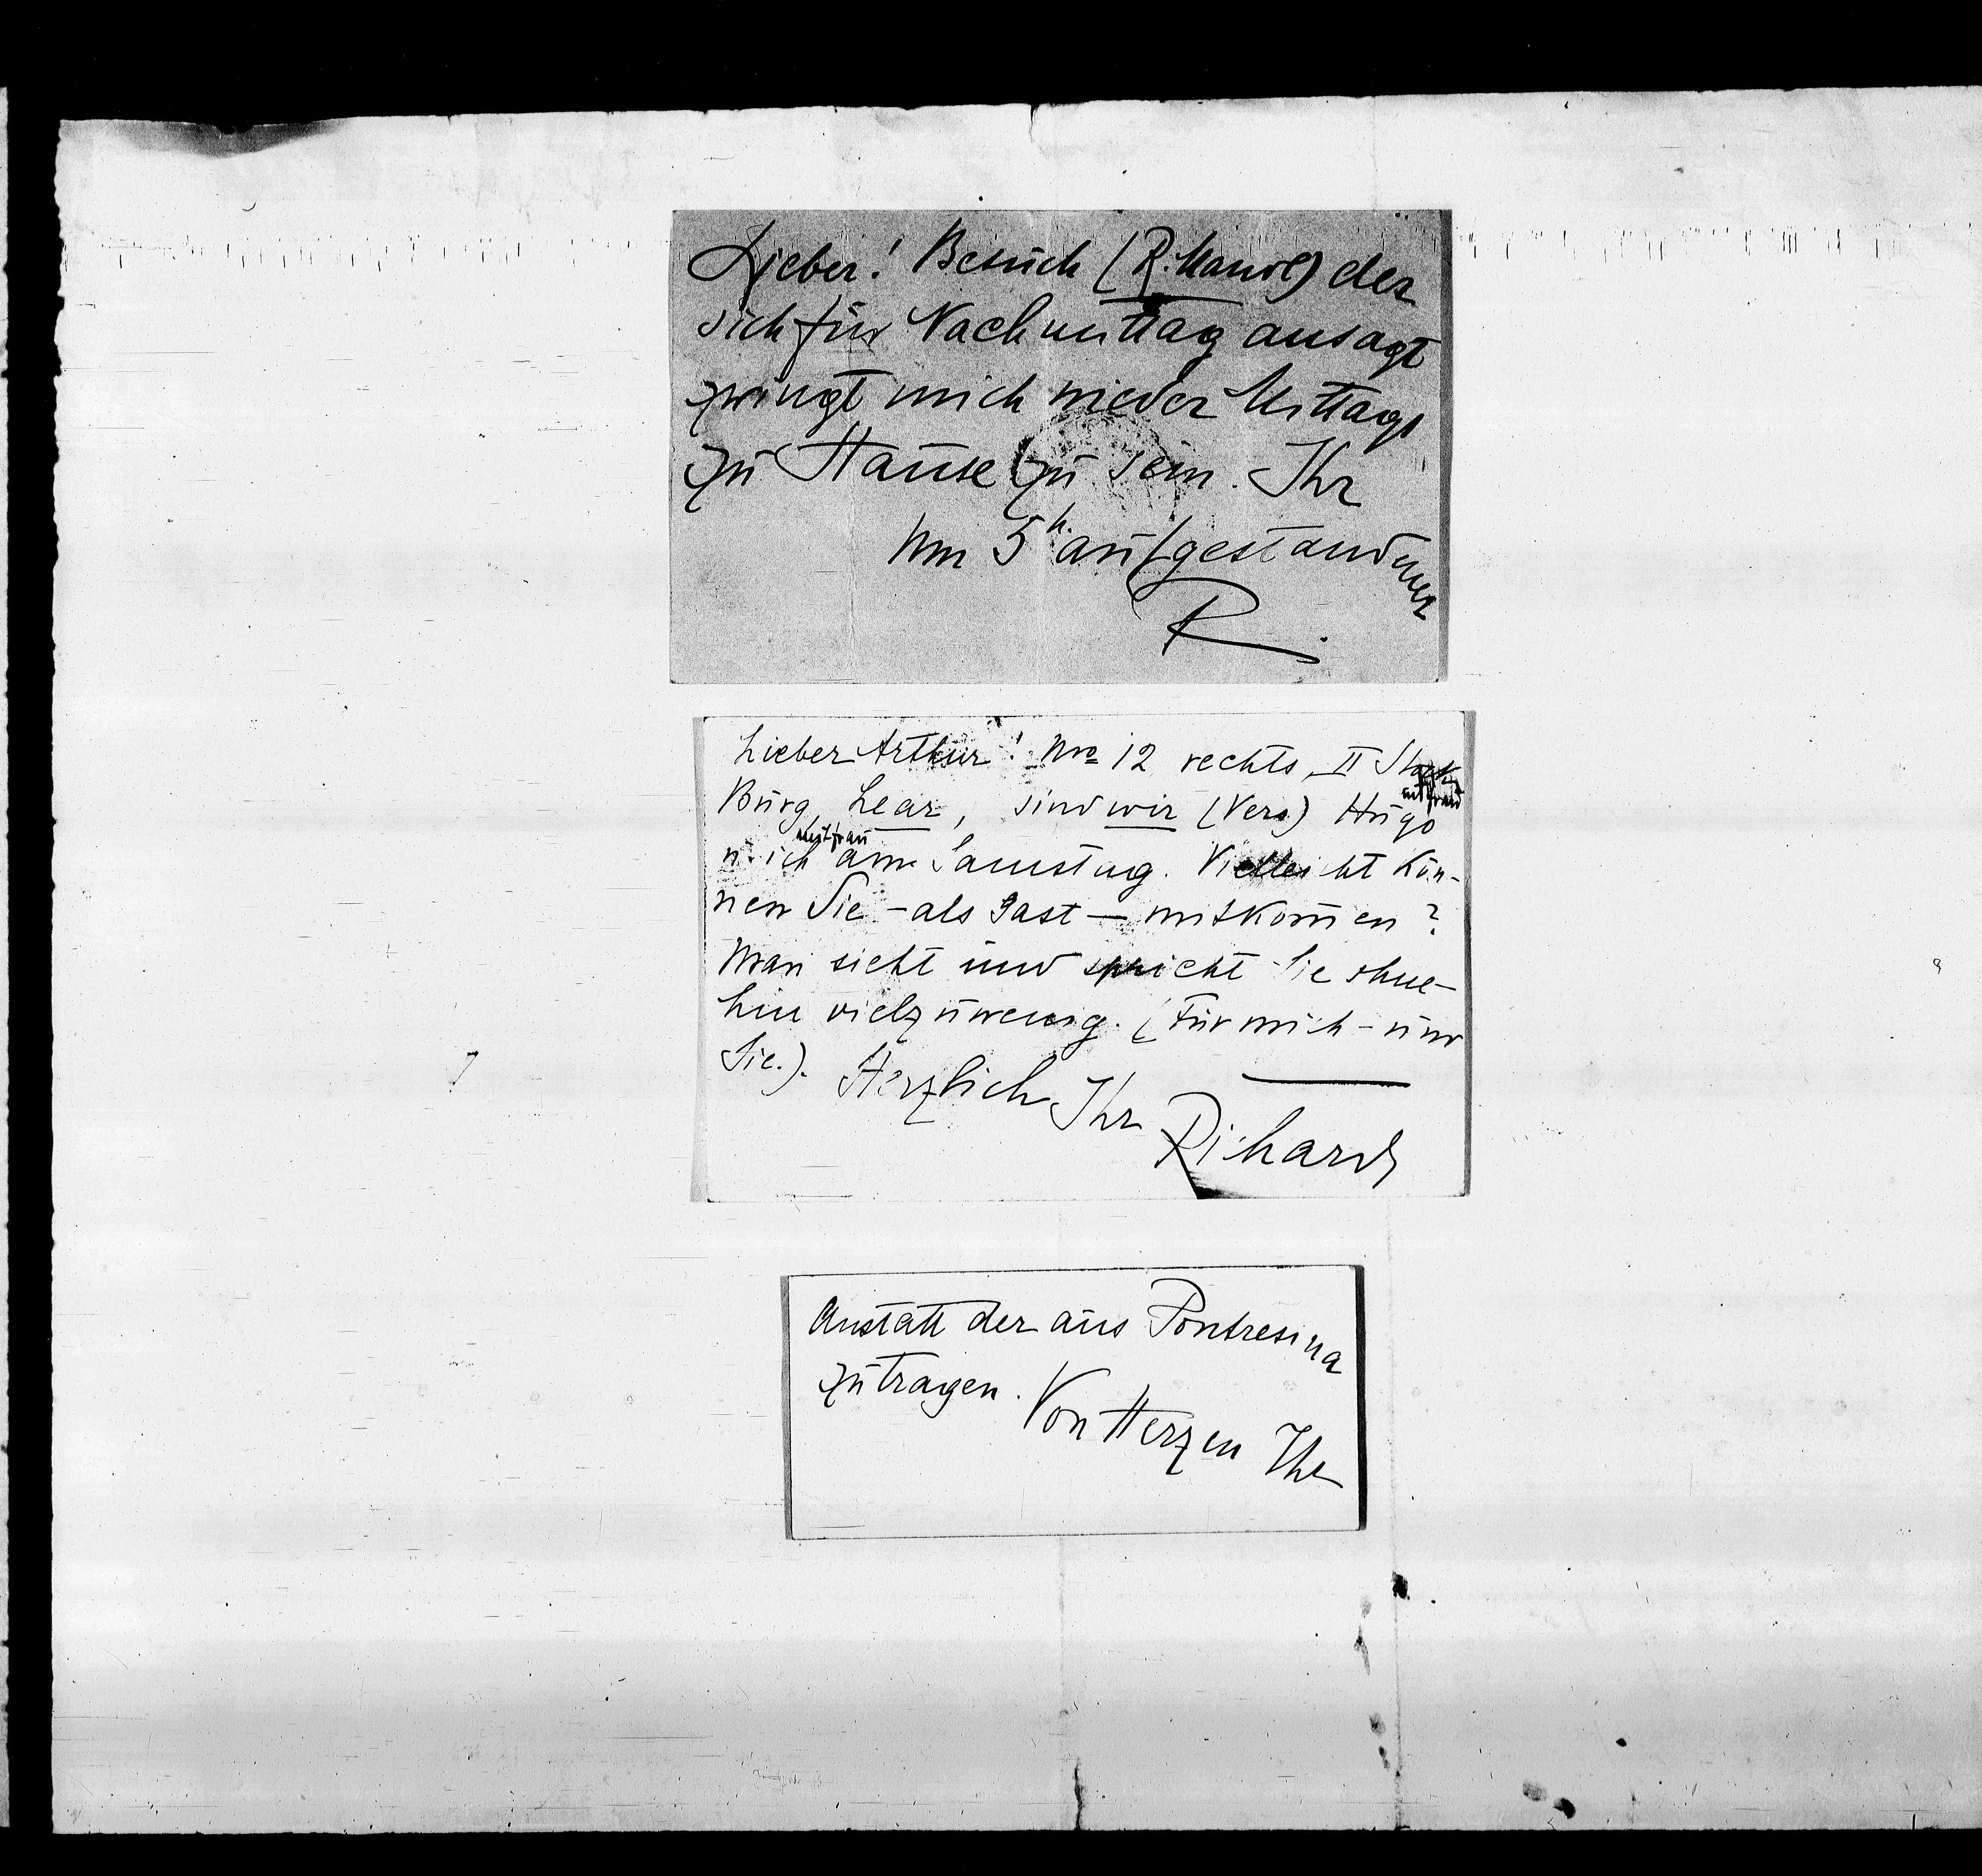 Lieber! Besuch (R. Mandl) der
sich für Nachmittag ansagt
zwingt mich wieder Mittags
zu Hause zu sein. Ihr
um 5h. aufgestandener
R.
Lieber Arthur! Nro 12 rechts, II Stock
Burg, Lear, sind wir (Vera) Hugo mit Frau
u. ich mit Frau am Samstag. Vielleicht kön-
nen Sie – als Gast – mitkom̅en?
Man sieht und spricht Sie ohne-
hin viel zu wenig. (Für mich – nur
Sie.). Herzlich Ihr
Richard
Anstatt der aus Pontresina
zu tragen. Von Herzen Ihr